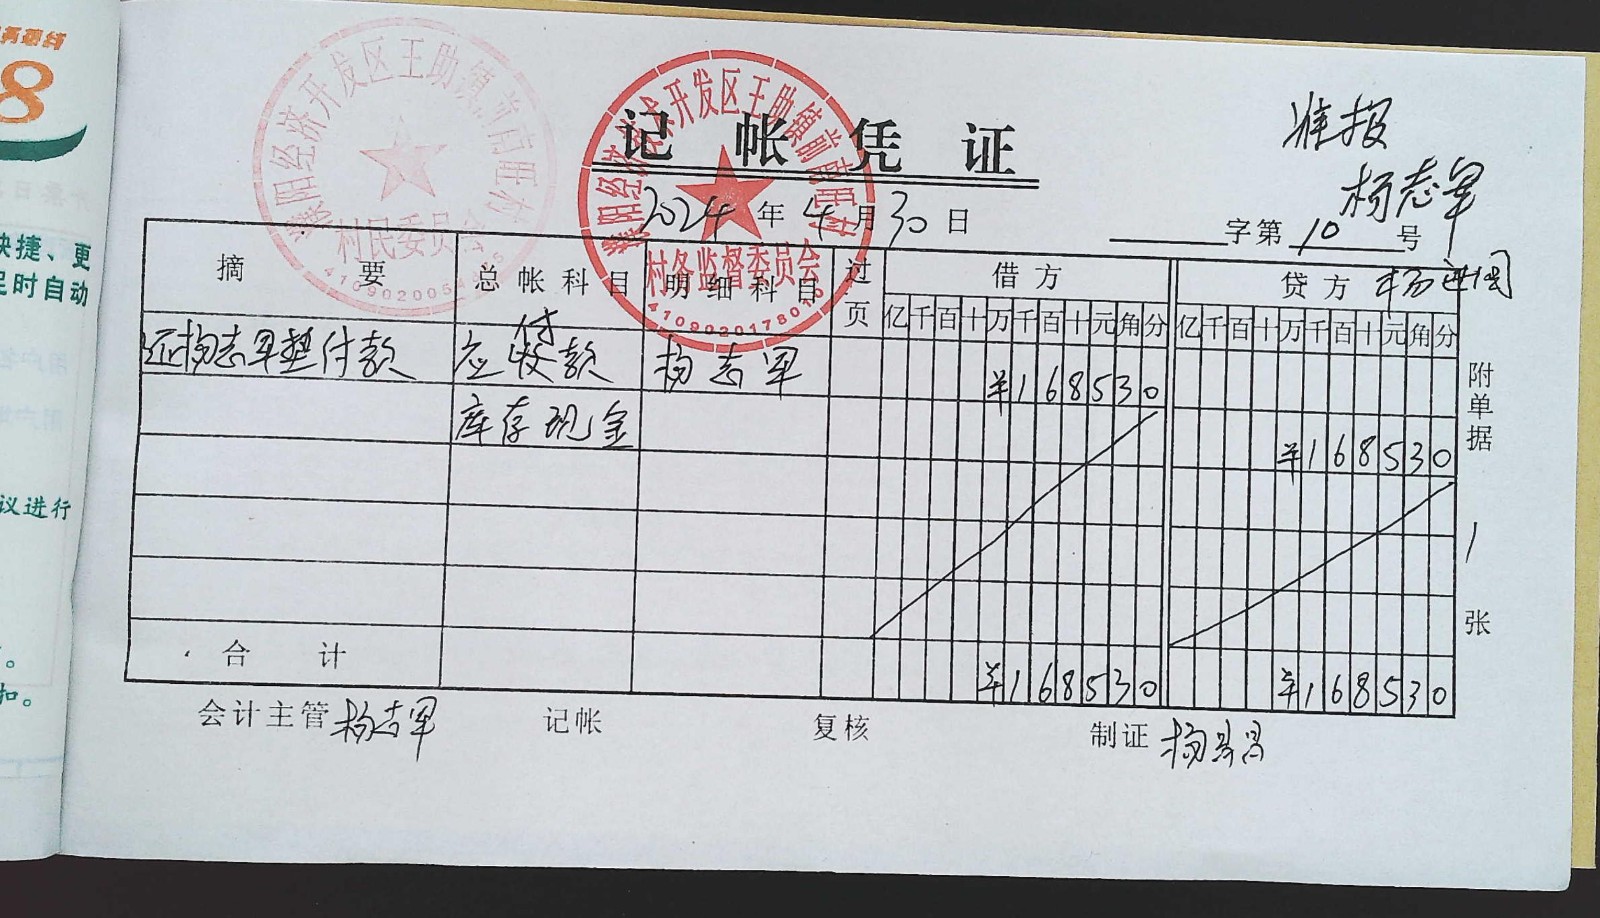 8
快捷、更
足时自动
议进行
。
扣。
濮阳经济开发区王助镇前南旺村
村民委员会
濮阳经济技术开发区王助镇前南旺村
村务监督委员会
4109020178010
记帐凭证
准报
杨志军
2024年4月30日
字第10号
摘要 总帐科目 明细科目 过页 借方 贷方
亿千百十万千百十元角分 亿千百十万千百十元角分
还杨志军垫付款 应付款 杨志军 ¥168530
库存现金 ¥168530
合计 ¥168530 ¥168530
附单据1张
会计主管 杨志军 记帐 复核 制证